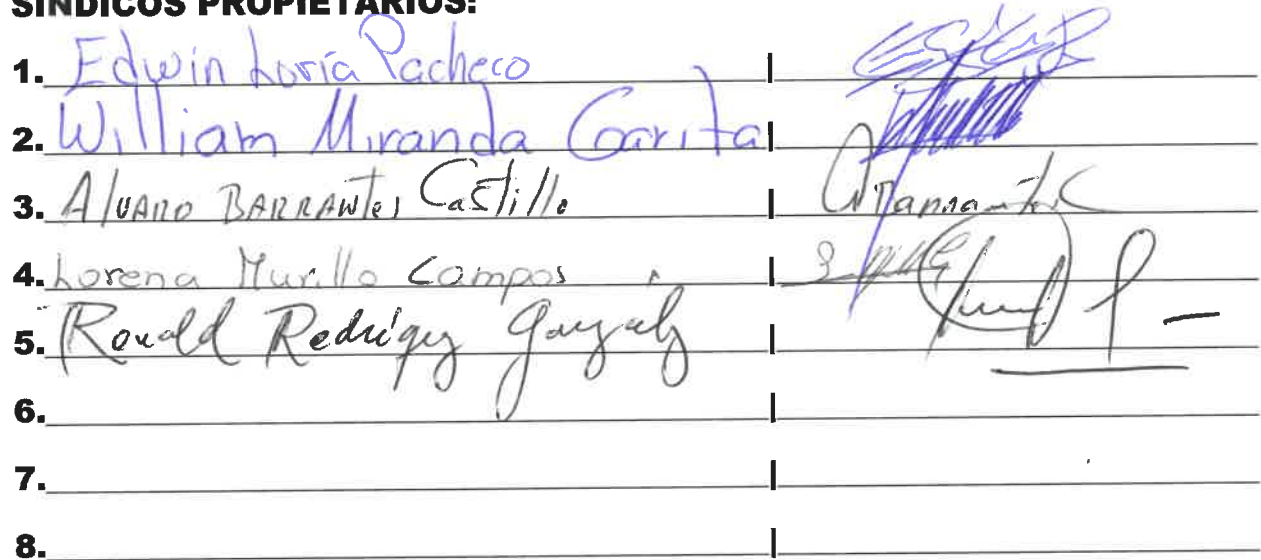 SÍNDICOS PROPIETARIOS:
1. Edwin Loría Pacheco |
2. William Miranda Garita |
3. Alvaro BARRANTES Castillo |
4. Lorena Murillo Campos |
5. Ronald Rodríguez González |
6. |
7. |
8. |